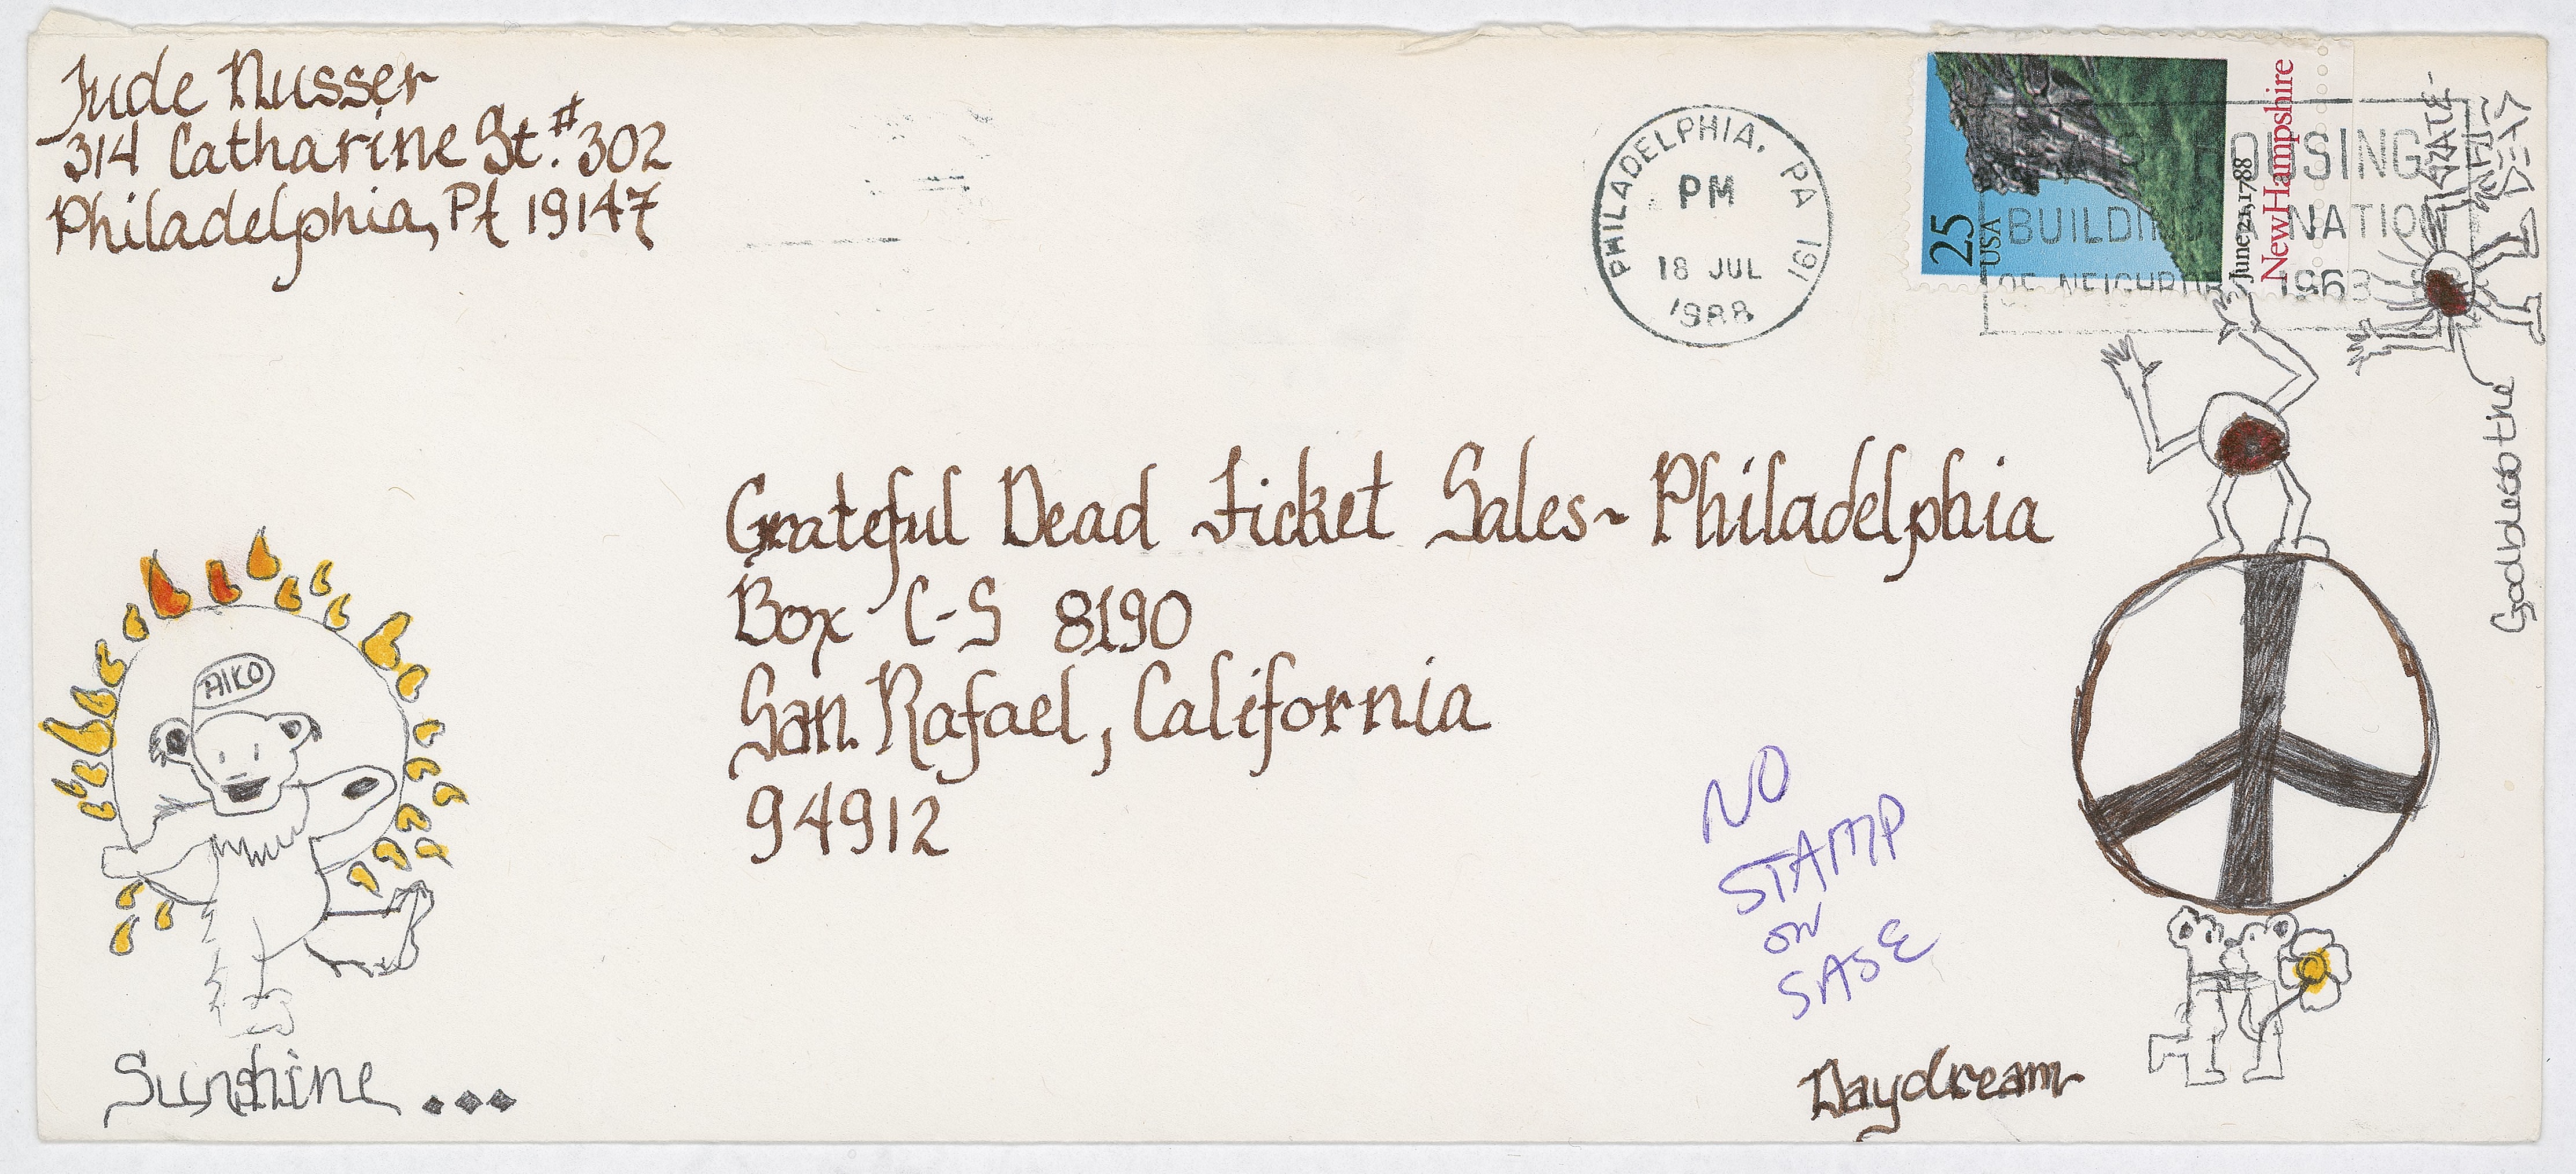 Jude Nusser
314 Catharine St. #302
Philadelphia, PA 19147
PHILADELPHIA, PA 191
PM
18 JUL
1988
25
USA
June 21, 1788
New Hampshire
HOUSING
BUILDING A NATION
OF NEIGHBORS 1968
GRATE-
FUL
DEAD
Grateful Dead Ticket Sales~Philadelphia
Box C-S 8190
San Rafael, California
94912
AIKO
NO
STAMP
ON
SASE
Sunshine...
Daydream